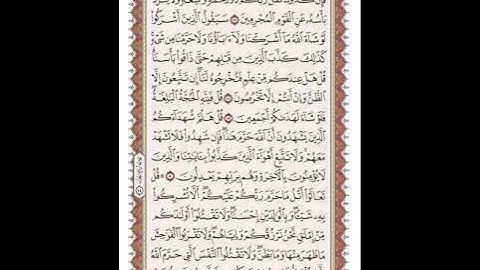 فَإِن كَذَّبُوكَ فَقُل رَّبُّكُمْ ذُو رَحْمَةٍ وَٰسِعَةٍ وَلَا يُرَدُّ
بَأْسُهُۥ عَنِ ٱلْقَوْمِ ٱلْمُجْرِمِينَ ١٤٧ سَيَقُولُ ٱلَّذِينَ أَشْرَكُوا۟
لَوْ شَآءَ ٱللَّهُ مَآ أَشْرَكْنَا وَلَآ ءَابَآؤُنَا وَلَا حَرَّمْنَا مِن شَىْءٍ
كَذَٰلِكَ كَذَّبَ ٱلَّذِينَ مِن قَبْلِهِمْ حَتَّىٰ ذَاقُوا۟ بَأْسَنَا
قُلْ هَلْ عِندَكُم مِّنْ عِلْمٍ فَتُخْرِجُوهُ لَنَآ إِن تَتَّبِعُونَ إِلَّا
ٱلظَّنَّ وَإِنْ أَنتُمْ إِلَّا تَخْرُصُونَ ١٤٨ قُلْ فَلِلَّهِ ٱلْحُجَّةُ ٱلْبَٰلِغَةُ
فَلَوْ شَآءَ لَهَدَىٰكُمْ أَجْمَعِينَ ١٤٩ قُلْ هَلُمَّ شُهَدَآءَكُمُ
ٱلَّذِينَ يَشْهَدُونَ أَنَّ ٱللَّهَ حَرَّمَ هَٰذَا فَإِن شَهِدُوا۟ فَلَا تَشْهَدْ
مَعَهُمْ وَلَا تَتَّبِعْ أَهْوَآءَ ٱلَّذِينَ كَذَّبُوا۟ بِـَٔايَٰتِنَا وَٱلَّذِينَ
لَا يُؤْمِنُونَ بِٱلْـَٔاخِرَةِ وَهُم بِرَبِّهِمْ يَعْدِلُونَ ١٥٠ قُلْ
تَعَالَوْا۟ أَتْلُ مَا حَرَّمَ رَبُّكُمْ عَلَيْكُمْ أَلَّا تُشْرِكُوا۟
بِهِۦ شَيْـًٔا وَبِٱلْوَٰلِدَيْنِ إِحْسَٰنًا وَلَا تَقْتُلُوٓا۟ أَوْلَٰدَكُم
مِّنْ إِمْلَٰقٍ نَّحْنُ نَرْزُقُكُمْ وَإِيَّاهُمْ وَلَا تَقْرَبُوا۟ ٱلْفَوَٰحِشَ
مَا ظَهَرَ مِنْهَا وَمَا بَطَنَ وَلَا تَقْتُلُوا۟ ٱلنَّفْسَ ٱلَّتِى حَرَّمَ ٱللَّهُ